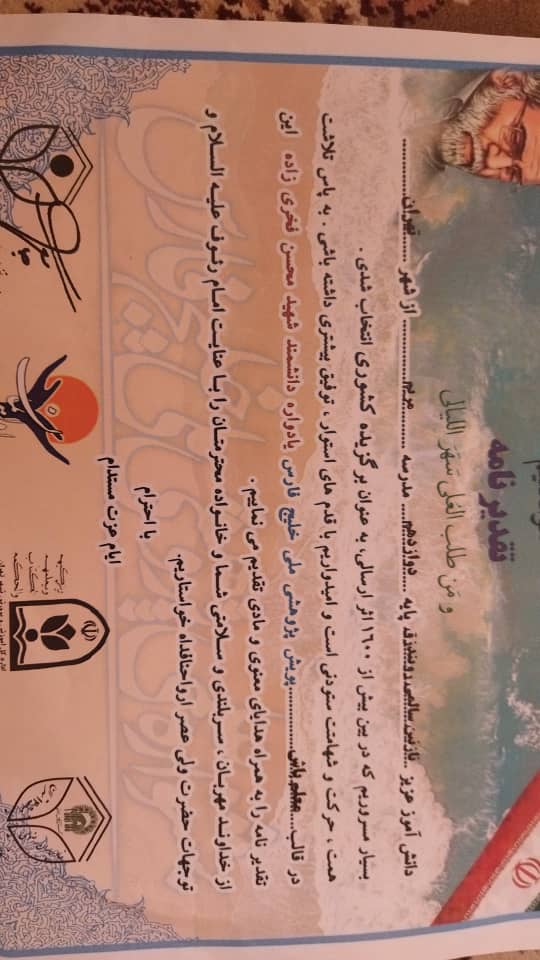 تقدیر نامه
و مَن طلب العُلی سَهَر اللیالی
دانش آموز عزیز ...نازنین سالمی زوبندزق پایه ......دوازدهم.... مدرسه ..........مریم................ از شهر .......تهران...............
بسیار مسروریم که در بین بیش از ۱۶۰۰ اثر ارسالی، به عنوان برگزیده کشوری انتخاب شدی .
همت ، حرکت و شهامتت ستودنی است و امیدواریم با قدم های استوار ، توفیق بیشتری داشته باشی . به پاس تلاشت
در قالب....معلم باش............پویش پژوهشی ملی خلیج فارس یادواره دانشمند شهید محسن فخری زاده این
تقدیر نامه را به همراه هدایای معنوی و مادی تقدیم می نماییم.
از خداوند مهربان ، سربلندی و سلامتی شما و خانواده محترمتان را با عنایت امام رئوف علیه السلام و
توجهات حضرت ولی عصر ارواحنافداه خواستاریم.
با احترام
ایام عزت مستدام